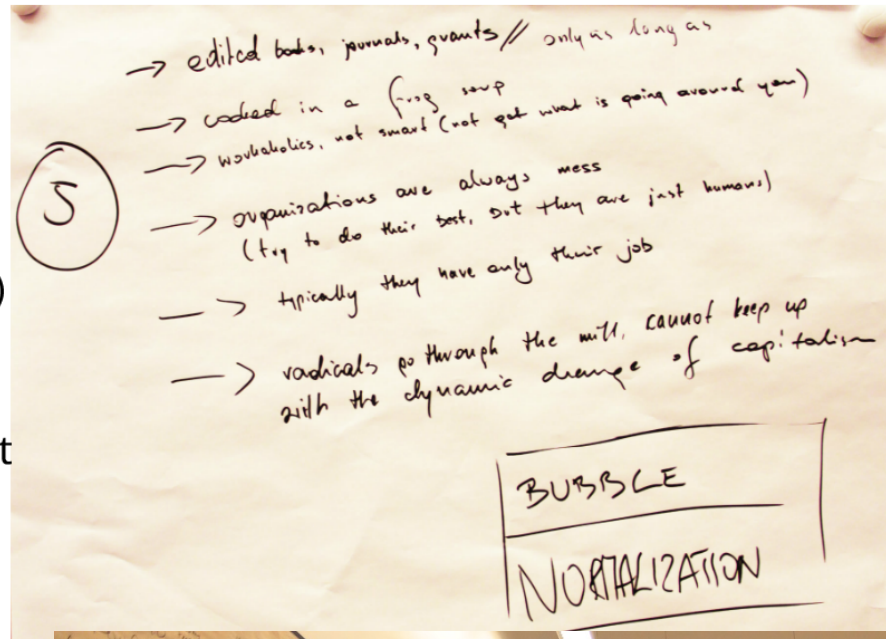 → edited books, journals, grants // only as long as
→ cooked in a frog soup
→ workaholics, not smart (not get what is going around you)
5
→ organizations are always mess
(try to do their best, but they are just humans)
)
→ typically they have only their job
→ radicals go through the mill, cannot keep up
with the dynamic change of capitalism
t
BUBBLE
NORMALIZATION